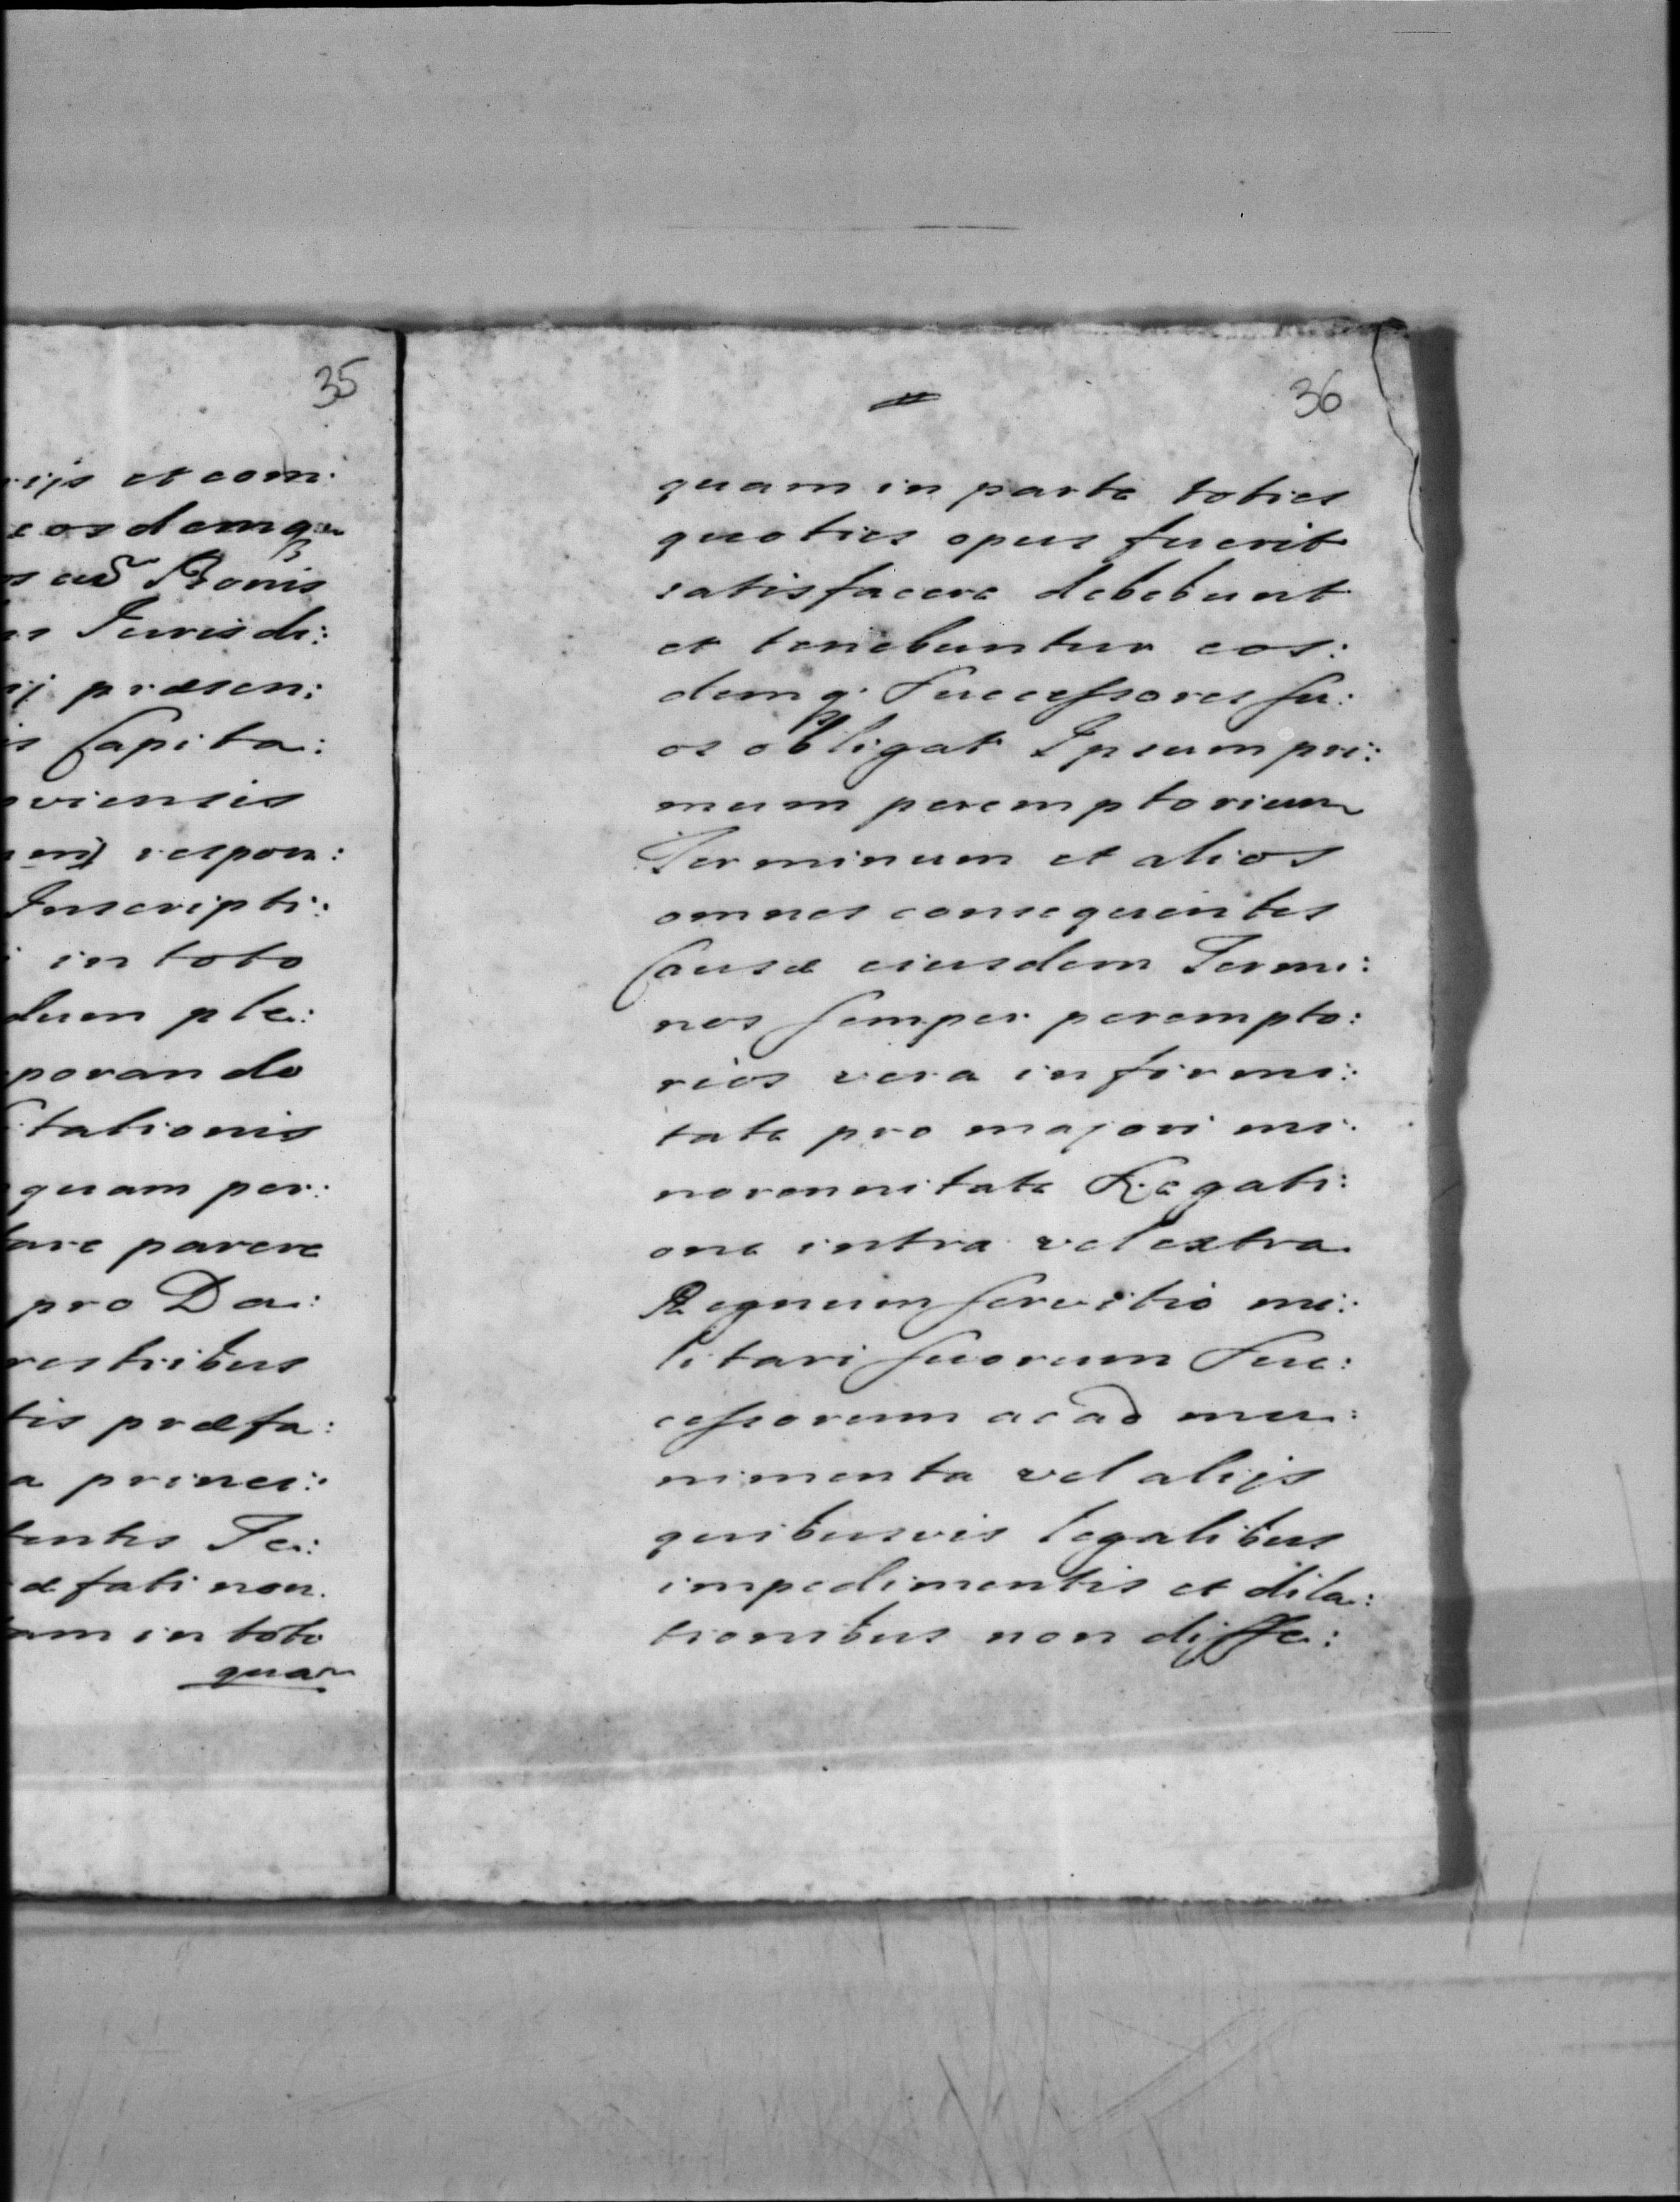 35
ijs et com:
eosdemq
cu Bonis
Jurisdi:
ij præsen:
is Capita:
viensis
respon:
Inscripti:
in toto
dum ple:
porando
tationis
quam per:
are parere
pro Da:
restribus
tis præfa:
a princi:
tentis Te:
æfati non
am in toto
quam
36
quam in parte toties
quoties opus fuerit
satisfacere debebunt
et tenebuntur eos:
demq. Successores su:
os obligat Ipsum pri:
mum peremptorium
Terminum et alios
omnes consequentes
Causæ eiusdem Termi:
nos semper perempto:
rios vera infirmi:
tate pro majori mi:
norennitate Legati:
one intra vel extra
Regnum servitio mi:
litari suorum Suc:
cessorum ac ad mu:
nimenta vel alijs
quibusvis legalibus
impedimentis et dila:
tionibus non diffe: